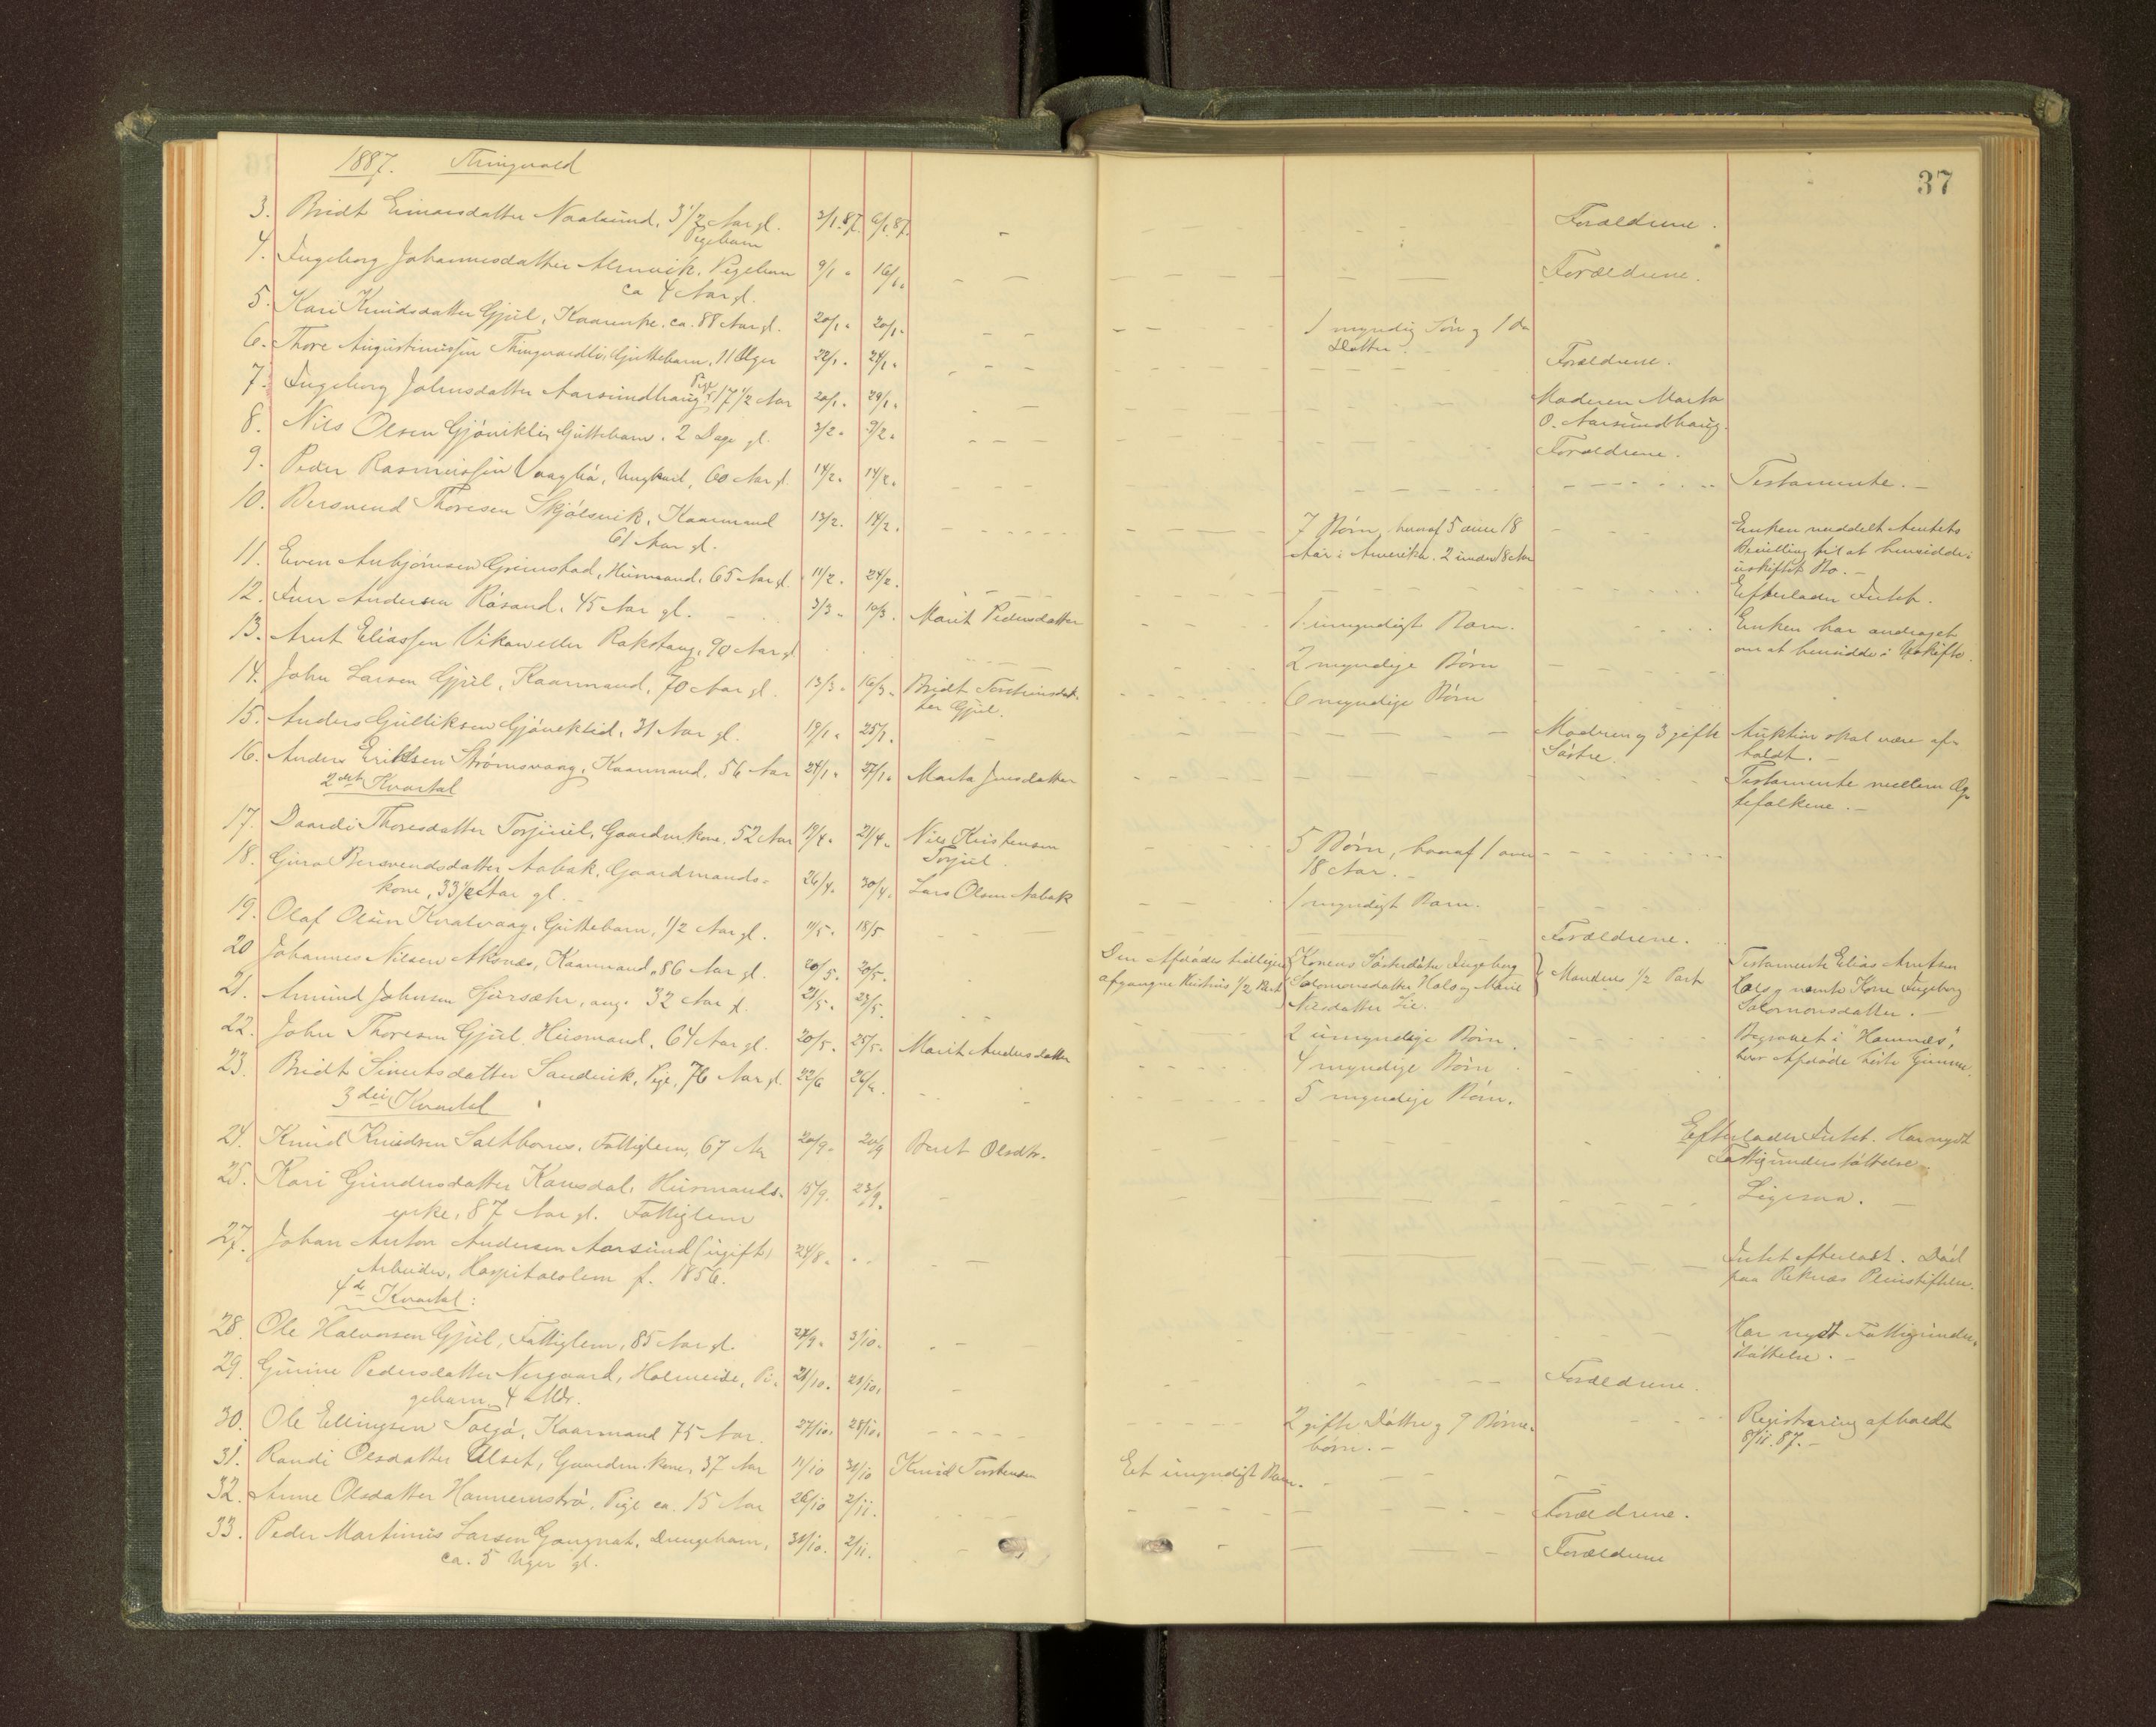 37
1887. Thingvold
3. Bridt Einarsdatter Naalsund, 3 1/2 Aar gl. 3/1.87. 6/1.87. Forældrene.
Pigebarn
4. Ingeborg Johannesdatter Almvik, Pigebarn 9/1 16/1 Forældrene.
ca 4 Aar gl.
5. Kari Knudsdatter Gjül, Kaarenke, ca. 88 Aar gl. 20/1 20/1 1 myndig Sön og 1 do
Datter.
6. Thore Augustinussen Thingvoldli, Guttebarn, 11 Uger 22/1 24/1 Forældrene.
7. Ingeborg Johnsdatter Aarsundhaug, Pige 17 1/2 Aar 20/1 29/1 Moderen Marta
O. Aarsundhaug.
8. Nils Olsen Gjövikli, Guttebarn, 2 Dage gl. 3/2 9/2 Forældrene.
9. Peder Rasmussen Vaagbö, Ungkarl, 60 Aar gl. 14/2 14/2 Testamente.
10. Bersvend Thoresen Skjölsvik, Kaarmand 13/2 14/2 7 Börn, hvoraf 5 over 18 Enken meddelt Amtets
61 Aar gl. Aar i Amerika. 2 under 18 Aar Bevilling til at hensidde i
uskiftet Bo.
11. Even Anbjörnsen Grimstad, Husmand, 65 Aar gl. 11/2 24/2 Efterlader Intet.
12. Iver Andersen Rösand, 45 Aar gl. 3/3 10/3 Marit Pedersdatter 1 umyndigt Barn. Enken har andraget
om at hensidde i Uskifte.
13. Arnt Eliassen Vikan eller Rakstang, 90 Aar gl. 2 myndige Börn
14. John Larsen Gjül, Kaarmand, 70 Aar gl. 13/3 16/3 Bridt Torstensdat-
ter Gjül. 6 myndige Börn
15. Anders Gulliksen Gjöneklid, 31 Aar gl. 19/1 25/1 Moderen og 3 gifte Auktion skal være af-
Söstre. holdt.
16. Anders Eriksen Strömsvaag, Kaarmand, 56 Aar 24/1 27/1 Marta Jonsdatter Testamente mellem Æg-
tefolkene.
2det Kvartal
17. Daardi Thoresdatter Torjül, Gaardm.kone, 52 Aar 19/4 21/4 Nils Kristensen 5 Börn, hvoraf 1 over
Torjül 18 Aar.
18. Guro Bersvendsdatter Aabak, Gaardmands- 26/4 30/4 Lars Olsen Aabak 1 myndigt Barn.
kone, 33 1/2 Aar gl.
19. Olaf Olsen Kvalvaag, Guttebarn, 1/2 Aar gl. 11/5 18/5 Forældrene.
20 Johannes Nilsen Aksnes, Kaarmand, 86 Aar gl. 20/5 20/5 Den Afdödes tidligere Konens Sösterdötre Ingeborg Mandens 1/2 Part Testamente Elias Arntsen
afgangne Hustrus 1/2 Part Salomonsdatter Hals og Marie Hals og nævnte Kone Ingeborg
Nilsdatter Lie. Salomonsdatter.
21. Amund Johnsen Sjursæter, ang. 32 Aar gl. 21/5 23/5 2 umyndige Börn. Begravet i "Hamnæs",
hvor Afdöde
22. John Thoresen Gjül, Husmand, 64 Aar gl. 20/5 25/5 Marit Andersdatter 4 myndige Börn
23. Bridt Sivertsdatter Sandvik, Pige, 76 Aar gl. 22/6 26/6 5 myndige Börn.
3die Kvartal
24. Knud Knudsen Saltbones, Fattiglem, 67 Aar 20/9 20/9 Beret Olsdtr. Efterlader Intet. Har nydt
Fattigunderstöttelse.
25. Kari Gundersdatter Kamsdal, Husmands- 15/9 23/9 Ligesaa.
enke, 87 Aar gl. Fattiglem
27. Johan Anton Andersen Aarsund (ugift) 24/8 Intet efterladt. Död
Arbeider, Hospitalslem f. 1856. paa Reknæs Pleiestiftelse.
4de Kvartal:
28. Ole Halvorsen Gjül, Fattiglem, 85 Aar gl. 27/9 3/10 Har nydt Fattigunder-
stöttelse.
29. Gurine Pedersdatter Nergaard, Holmeide, Pi- 21/10. 21/10. Forældrene.
gebarn, 4 Mdr.
30. Ole Ellingsen Talgö, Kaarmand 75 Aar. 27/10. 28/10. 2 gifte Döttre og 9 Börne- Registrering afholdt
börn. 8/11.87.
31. Randi Olsdatter Ulset, Gaardm.kone, 37 Aar 11/10 31/10 Knud Torstensen Eet umyndigt Barn.
32. Anne Olsdatter Hammerströ, Pige ca. 15 Aar 26/10 2/11. Forældrene.
33. Peder Martinus Larsen Gangnat, Drengebarn, 31/10. 2/11. Forældrene
ca. 5 Uger gl.